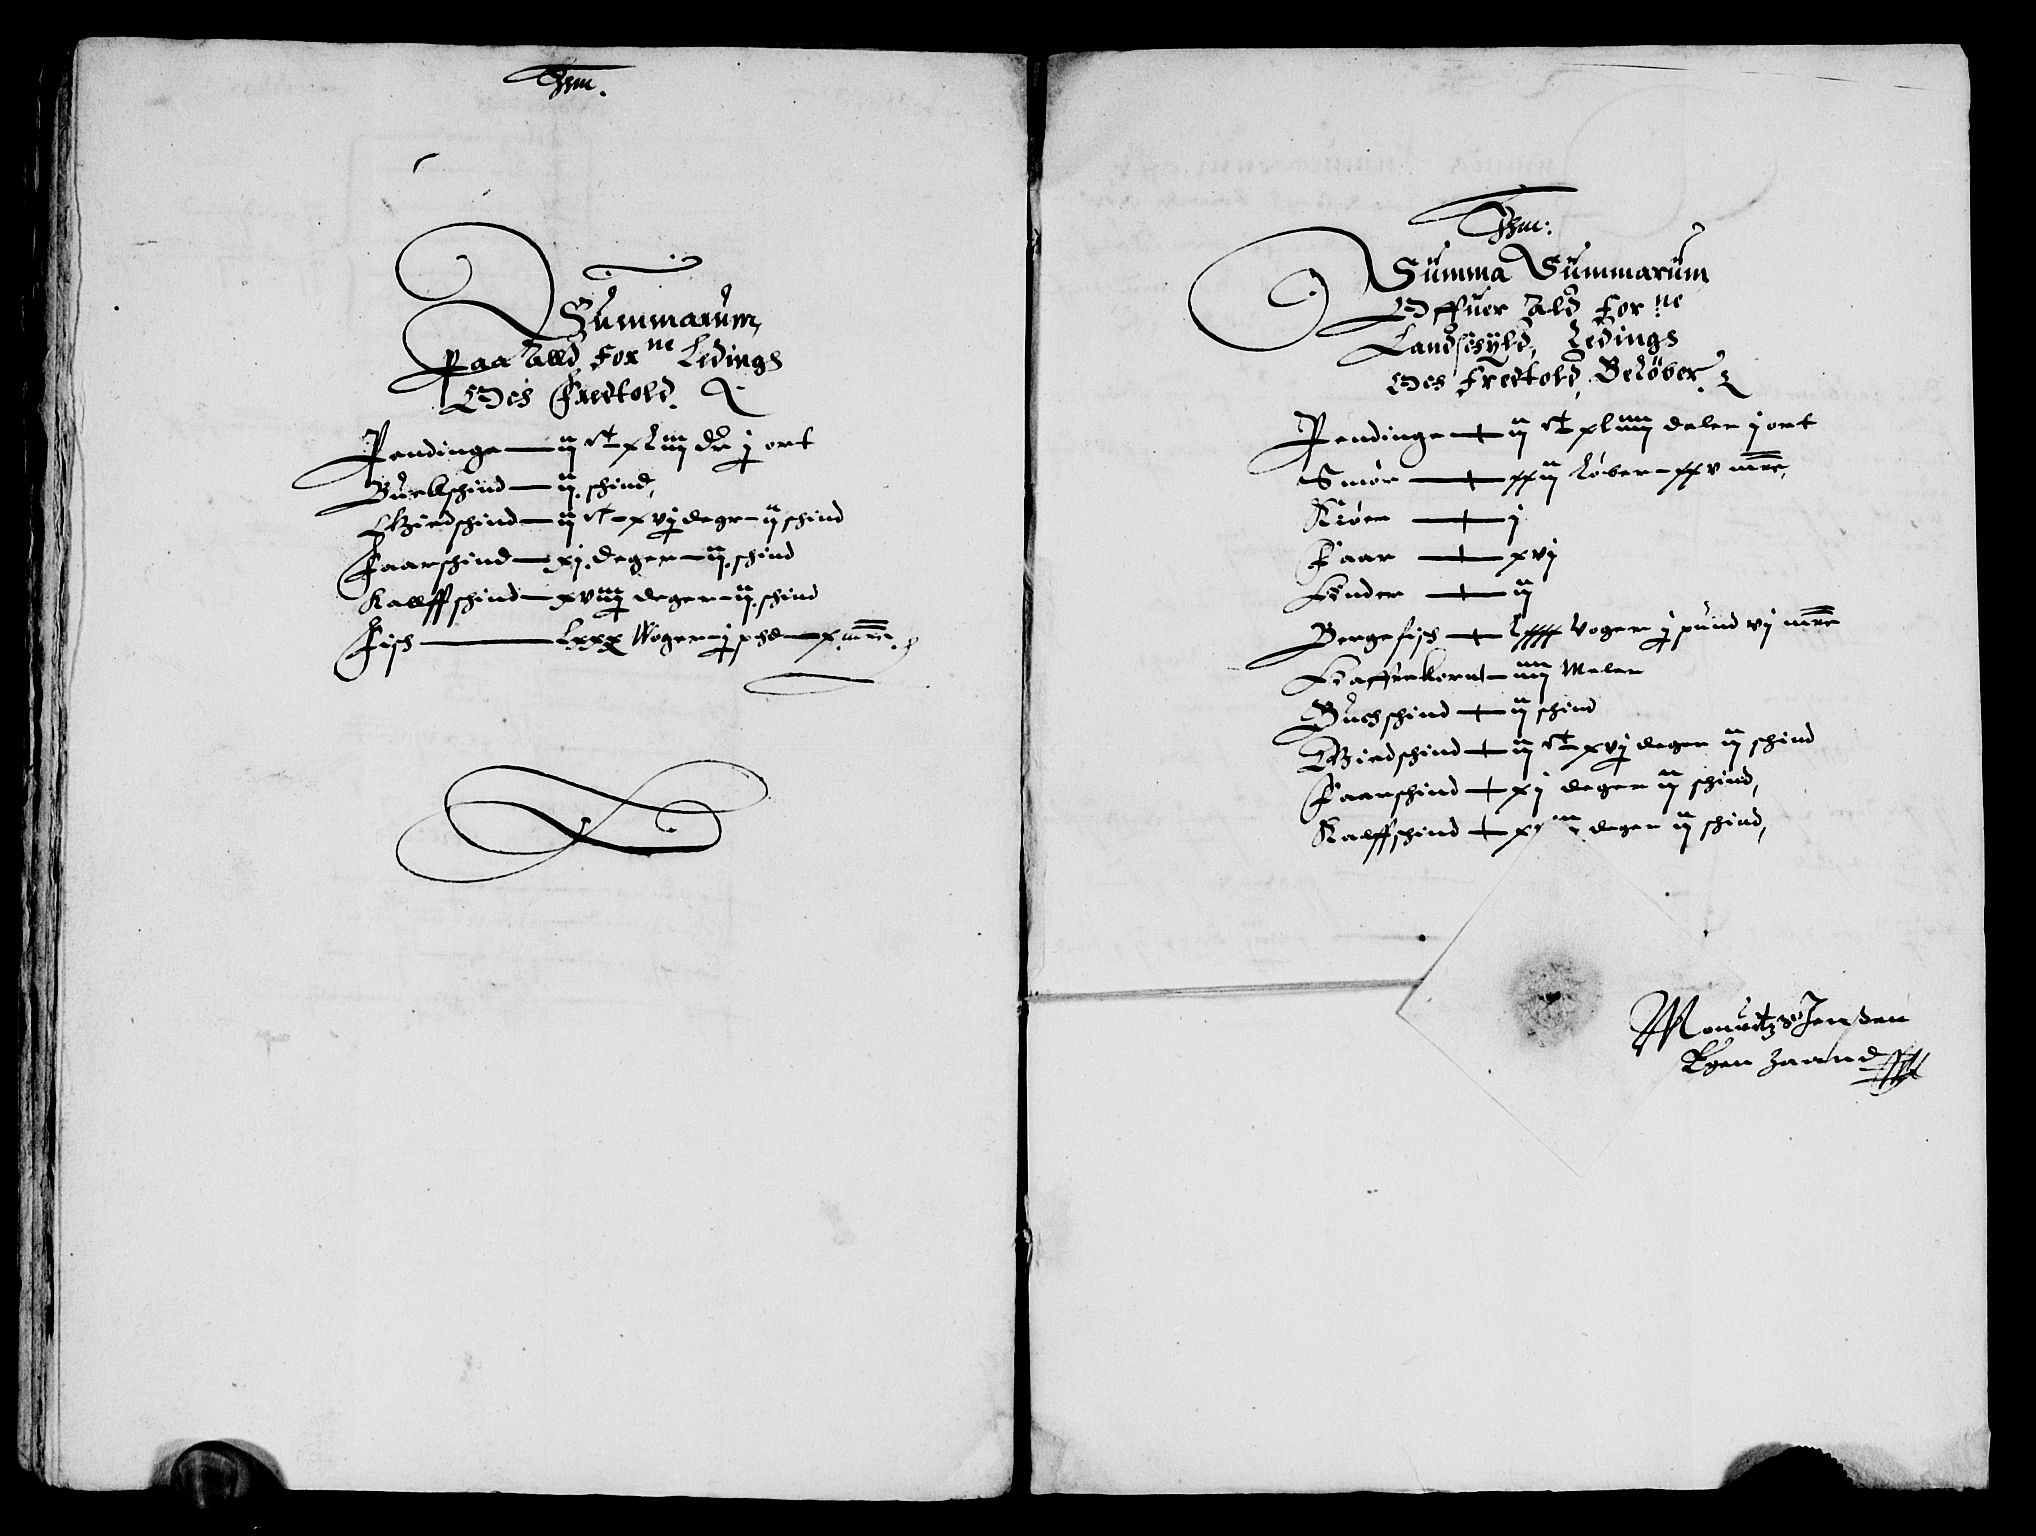 Summarum,
Paa Alld For ne Ledings
Oc Fredtold.
Pendinge — ij ct xliiij dr j ort
Buckschind — ij schind,
Giedschind — ij ct — xvj deger — ij schind
Faarschind — xj deger — ij schind
Kalffschind — xviij deger — ij schind
Fisch — lxxx Woger — j pd — x mrc.
Summa Summarum
Offuer Ald For ne
Landschyld, Ledings
Oc Fredtold, Beløber
Pendinge — ij ct xliiij daler j ort
Smør — xxij Løber — xxv mrc,
Kiøer — j
Faar — xvj
Huder — ij
Bergefisch — lxxxx Voger j pund vj mrc
Haffrekorn — iiij Meler
Buchschind — ij schind
Giedschind — ij ct — xvj deger ij schind
Faarschind — xj deger ij schind,
Kalffschind — deger ij schind,
Mouritz Jenßen
Egen Haand